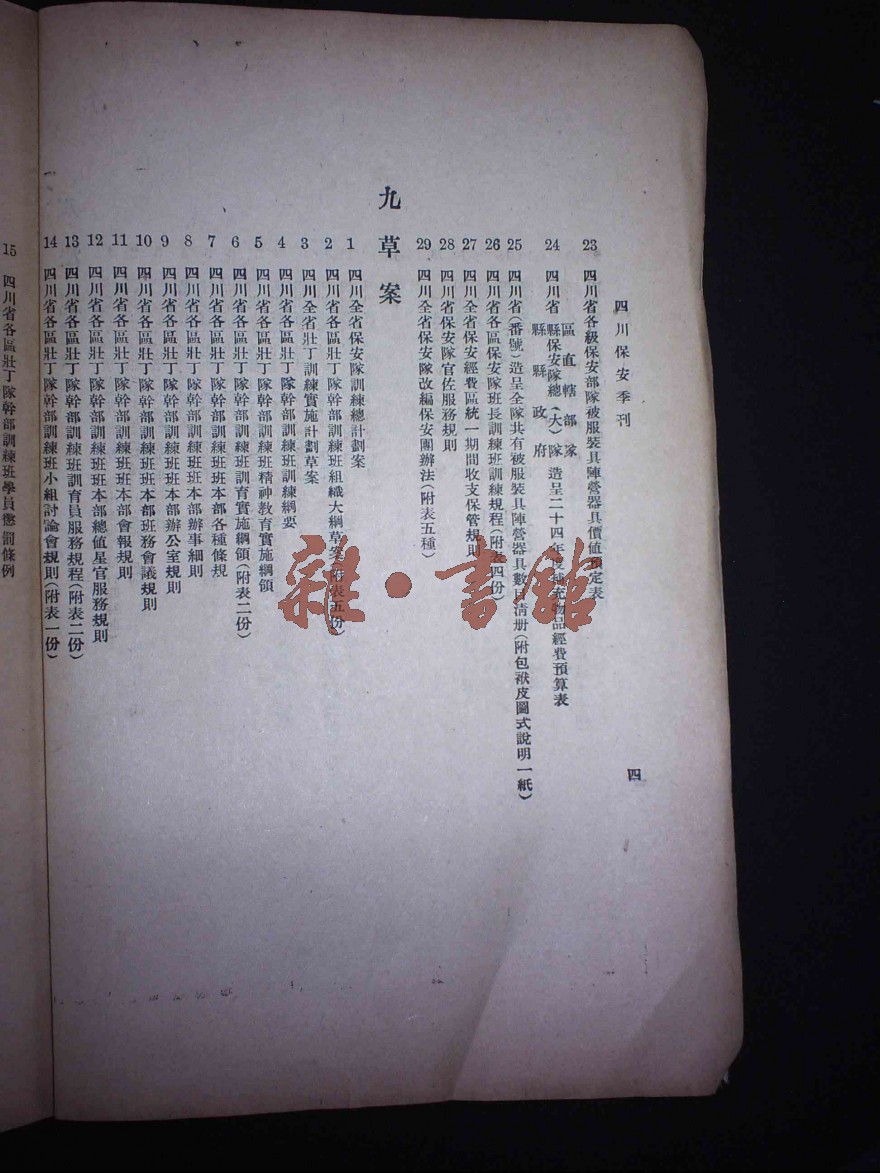 四川保安季刊
四
23 四川省各級保安部隊被服裝具陣營器具價值預定表
24 四川省 區直轄部隊 縣保安隊總(大)隊 縣縣政府 造呈二十四年度補充物品經費預算表
25 四川省(番號)造呈全隊共有被服裝具陣營器具數目清册(附包袱皮圖式說明一紙)
26 四川省各區保安隊班長訓練規程(附表四份)
27 四川全省保安經費區統一期間收支保管規則
28 四川省保安隊官佐服務規則
29 四川全省保安隊改編保安團辦法(附表五種)
九 草案
1 四川全省保安隊訓練總計劃案
2 四川省各區壯丁隊幹部訓練班組織大綱草案(附表五份)
3 四川全省壯丁訓練實施計劃草案
4 四川省各區壯丁隊幹部訓練班訓練綱要
5 四川省各區壯丁隊幹部訓練班精神教育實施綱領
6 四川省各區壯丁隊幹部訓練班訓育實施綱領(附表二份)
7 四川省各區壯丁隊幹部訓練班班本部各種條規
8 四川省各區壯丁隊幹部訓練班班本部辦事細則
9 四川省各區壯丁隊幹部訓練班班本部辦公室規則
10 四川省各區壯丁隊幹部訓練班班本部班務會議規則
11 四川省各區壯丁隊幹部訓練班班本部會報規則
12 四川省各區壯丁隊幹部訓練班班本部總值星官服務規則
13 四川省各區壯丁隊幹部訓練班訓育員服務規程(附表二份)
14 四川省各區壯丁隊幹部訓練班小組討論會規則(附表一份)
15 四川省各區壯丁隊幹部訓練班學員懲罰條例
雜·書館